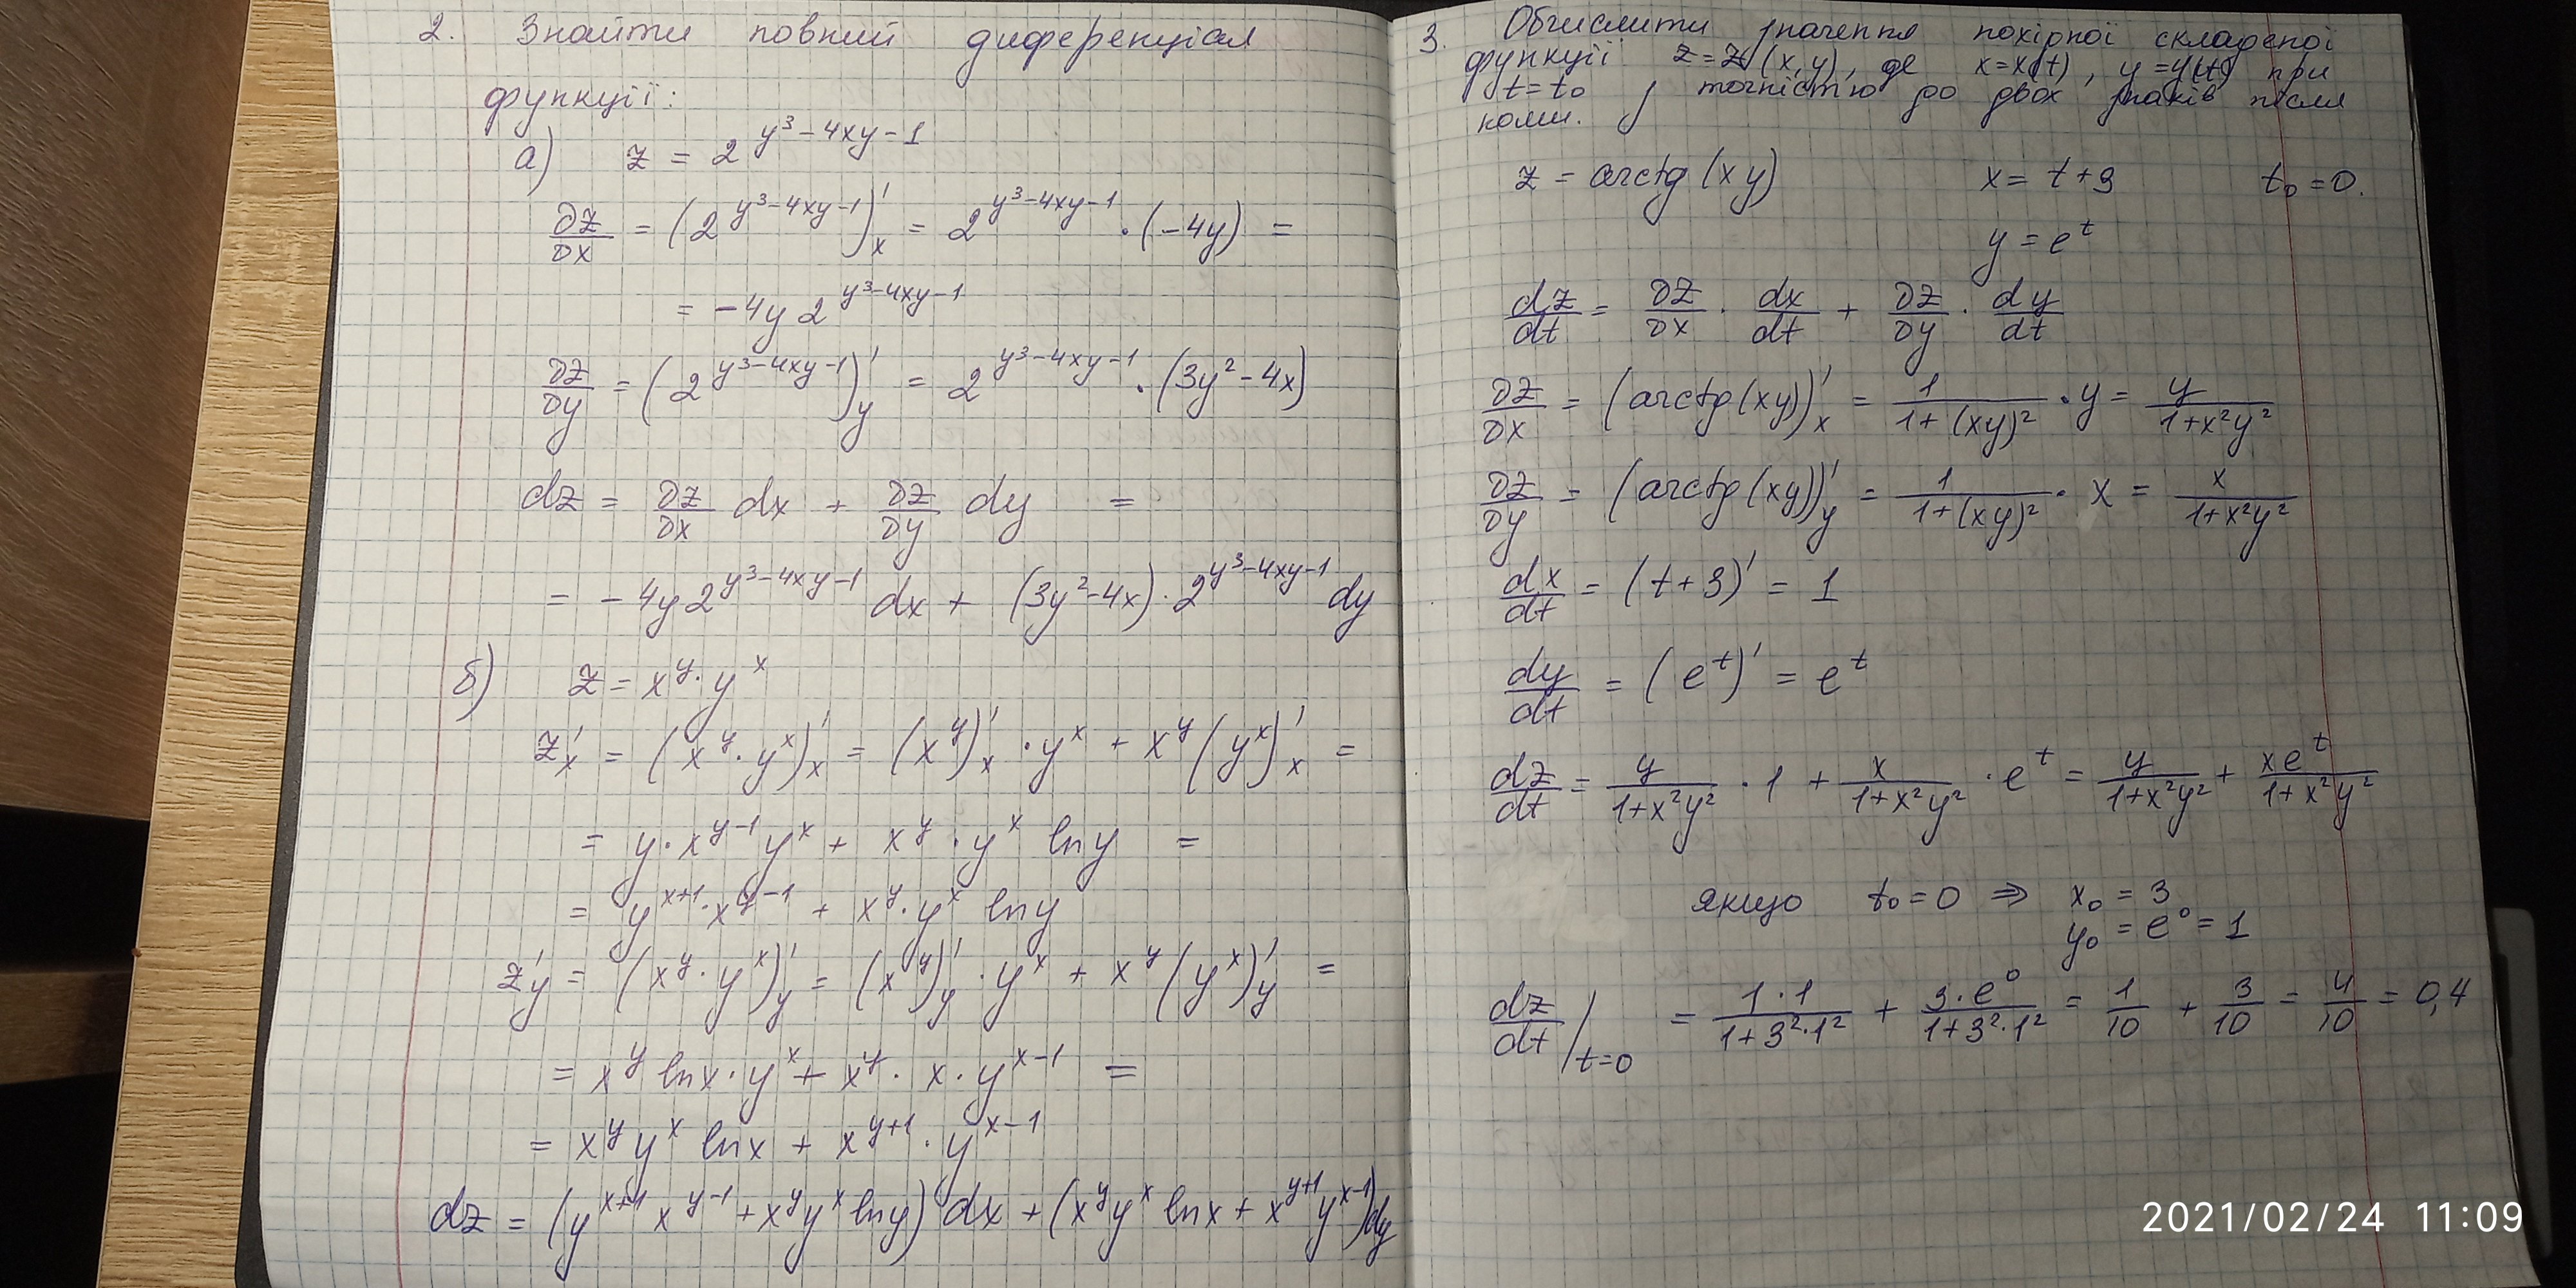 2. Знайти повний диференціал
функції:
а) z = 2^(y³-4xy-1)
∂z/∂x = (2^(y³-4xy-1))'ₓ = 2^(y³-4xy-1) · (-4y) =
= -4y 2^(y³-4xy-1)
∂z/∂y = (2^(y³-4xy-1))'_y = 2^(y³-4xy-1) · (3y²-4x)
dz = ∂z/∂x dx + ∂z/∂y dy =
= -4y 2^(y³-4xy-1) dx + (3y²-4x) · 2^(y³-4xy-1) dy
б) z = x^y · y^x
z'ₓ = (x^y · y^x)'ₓ = (x^y)'ₓ · y^x + x^y (y^x)'ₓ =
= y · x^(y-1) y^x + x^y · y^x ln y =
= y^(x+1) · x^(y-1) + x^y · y^x ln y
z'y = (x^y · y^x)'_y = (x^y)'_y · y^x + x^y (y^x)'_y =
= x^y ln x · y^x + x^y · x · y^(x-1) =
= x^y y^x ln x + x^(y+1) · y^(x-1)
dz = (y^(x+1) x^(y-1) + x^y y^x ln y) dx + (x^y y^x ln x + x^(y+1) y^(x-1)) dy
3. Обчислити значення похідної складеної
функції z = z(x, y), де x = x(t), y = y(t) при
t = t₀ з точністю до двох знаків після
коми.
z = arctg (xy) x = t+3 t₀ = 0.
y = e^t
dz/dt = ∂z/∂x · dx/dt + ∂z/∂y · dy/dt
∂z/∂x = (arctg(xy))'ₓ = 1/(1+(xy)²) · y = y/(1+x²y²)
∂z/∂y = (arctg(xy))'_y = 1/(1+(xy)²) · x = x/(1+x²y²)
dx/dt = (t+3)' = 1
dy/dt = (e^t)' = e^t
dz/dt = y/(1+x²y²) · 1 + x/(1+x²y²) · e^t = y/(1+x²y²) + xe^t/(1+x²y²)
якщо t₀ = 0 ⇒ x₀ = 3
y₀ = e⁰ = 1
dz/dt /t=0 = 1·1/(1+3²·1²) + 3·e⁰/(1+3²·1²) = 1/10 + 3/10 = 4/10 = 0,4
2021/02/24 11:09